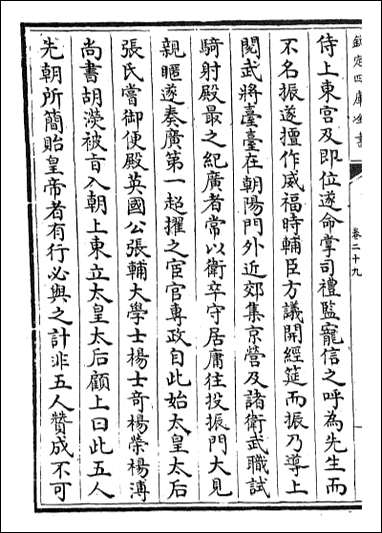 欽定四庫全書
卷二十九
侍上東宮及即位遂命掌司禮監寵信之呼為先生而
不名振遂擅作威福時輔臣方議開經筵而振乃導上
閱武將臺臺在朝陽門外近郊集京營及諸衛武職試
騎射殿最之紀廣者常以衛卒守居庸往投振門大見
親暱遂奏廣第一超擢之宦官專政自此始太皇太后
張氏嘗御便殿英國公張輔大學士楊士竒楊榮楊溥
尚書胡濙被㫖入朝上東立太皇太后顧上曰此五人
先朝所簡貽皇帝者有行必與之計非五人贊成不可